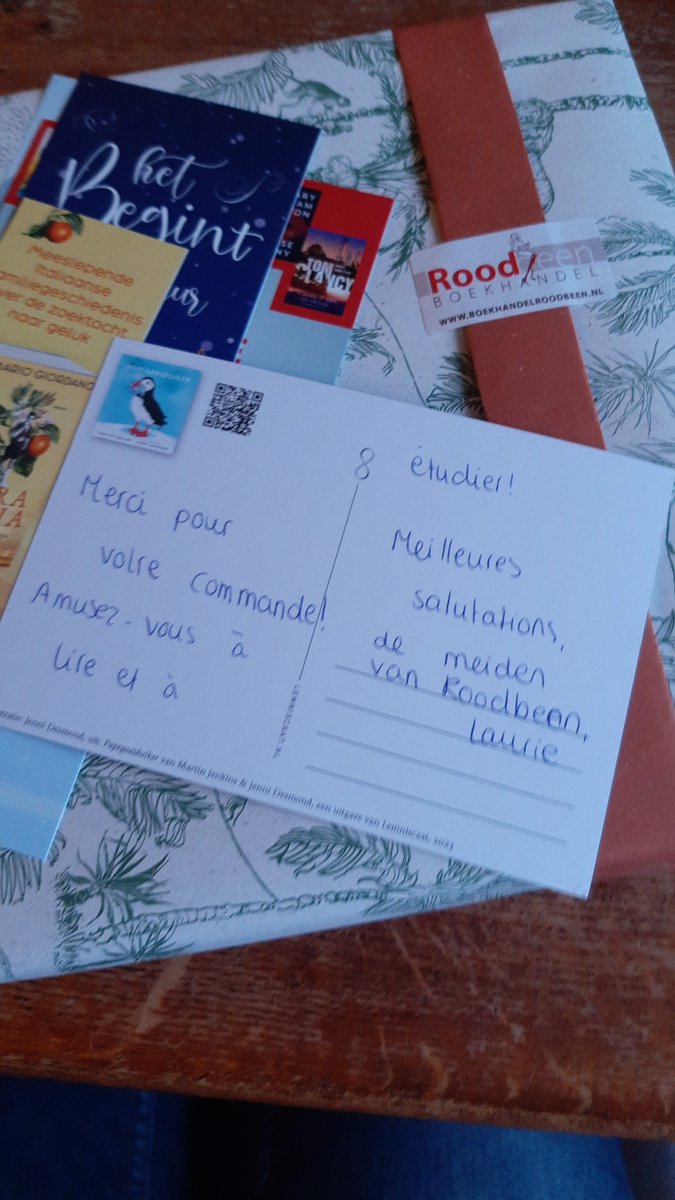 het
Begint
uur
Meeslepende
Italiaanse
familiegeschiedenis
over de zoektocht
naar geluk
MARIO GIORDANO
TOM
CLANCY
Roodbeen
BOEKHANDEL
WWW.BOEKHANDELROODBEEN.NL
Merci pour
votre commande!
Amusez-vous à
lire et à
8
étudier!
Meilleures
salutations,
de meiden
van Roodbeen,
Laurie
LEMNISCAAT.NL
Jenni Desmond, uit: Papegaaiduiker van Martin Jenkins & Jenni Desmond, een uitgave van Lemniscaat, 2023